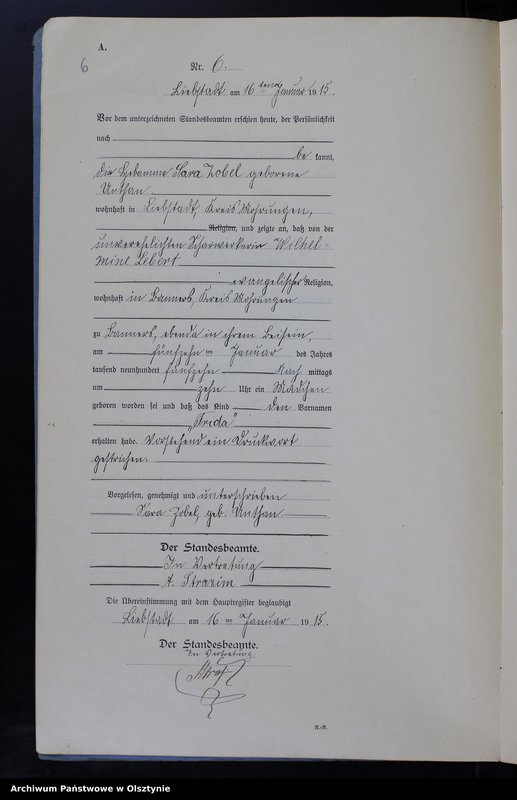 A.
6
Nr. 6.
Liebstadt am 16 ten Januar 1915.
Vor dem unterzeichneten Standesbeamten erschien heute, der Persönlichkeit
nach
be kannt,
die Hebamme Sara Zobel geborene
Unthan
wohnhaft in Liebstadt, Kreis Mohrungen,
Religion, und zeigte an, daß von der
unverehelichten Scharwerkerin Wilhel=
mine Lebert
evangelischer Religion,
wohnhaft in Banners, Kreis Mohrungen
zu Banners, ebenda in ihrem Beisein,
am fünfzehn ten Januar des Jahres
tausend neunhundert fünfzehn Nach mittags
um zehn Uhr ein Mädchen
geboren worden sei und daß das Kind den Vornamen
„Frida“
erhalten habe. Vorstehend ein Druckwort
gestrichen.
Vorgelesen, genehmigt und unterschrieben
Sara Zobel, geb. Unthan
Der Standesbeamte.
In Vertretung
A. Strazim
Die Übereinstimmung mit dem Hauptregister beglaubigt
Liebstadt am 16 ten Januar 1915.
Der Standesbeamte.
In Vertretung
K.-R.
Archiwum Państwowe w Olsztynie